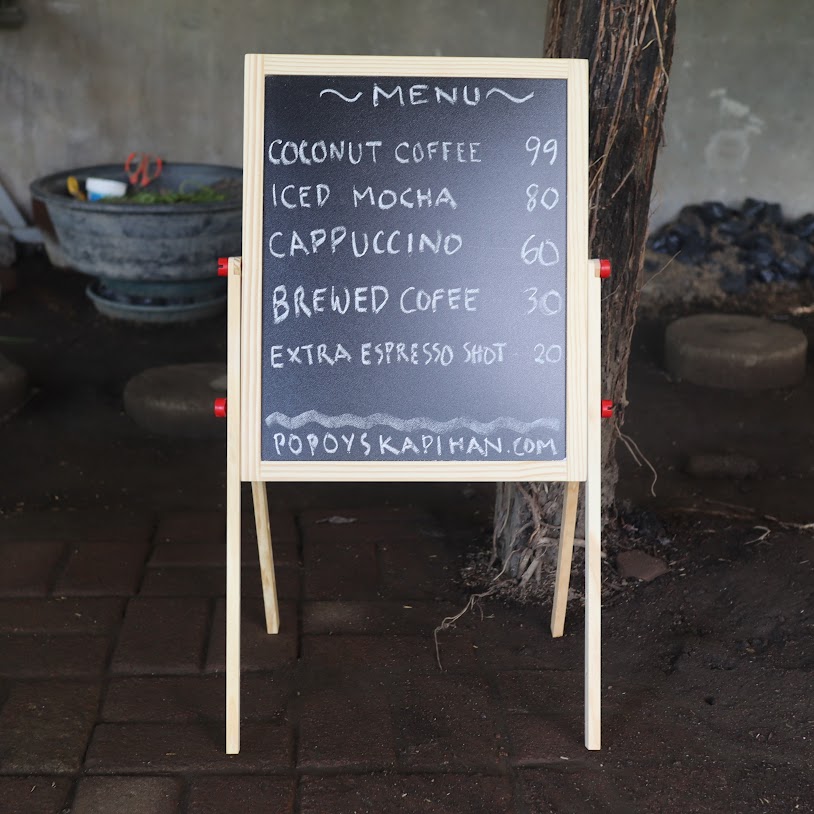 ~MENU~
COCONUT COFFEE 99
ICED MOCHA 80
CAPPUCCINO 60
BREWED COFEE 30
EXTRA ESPRESSO SHOT 20
POPOYSKAPIHAN.COM